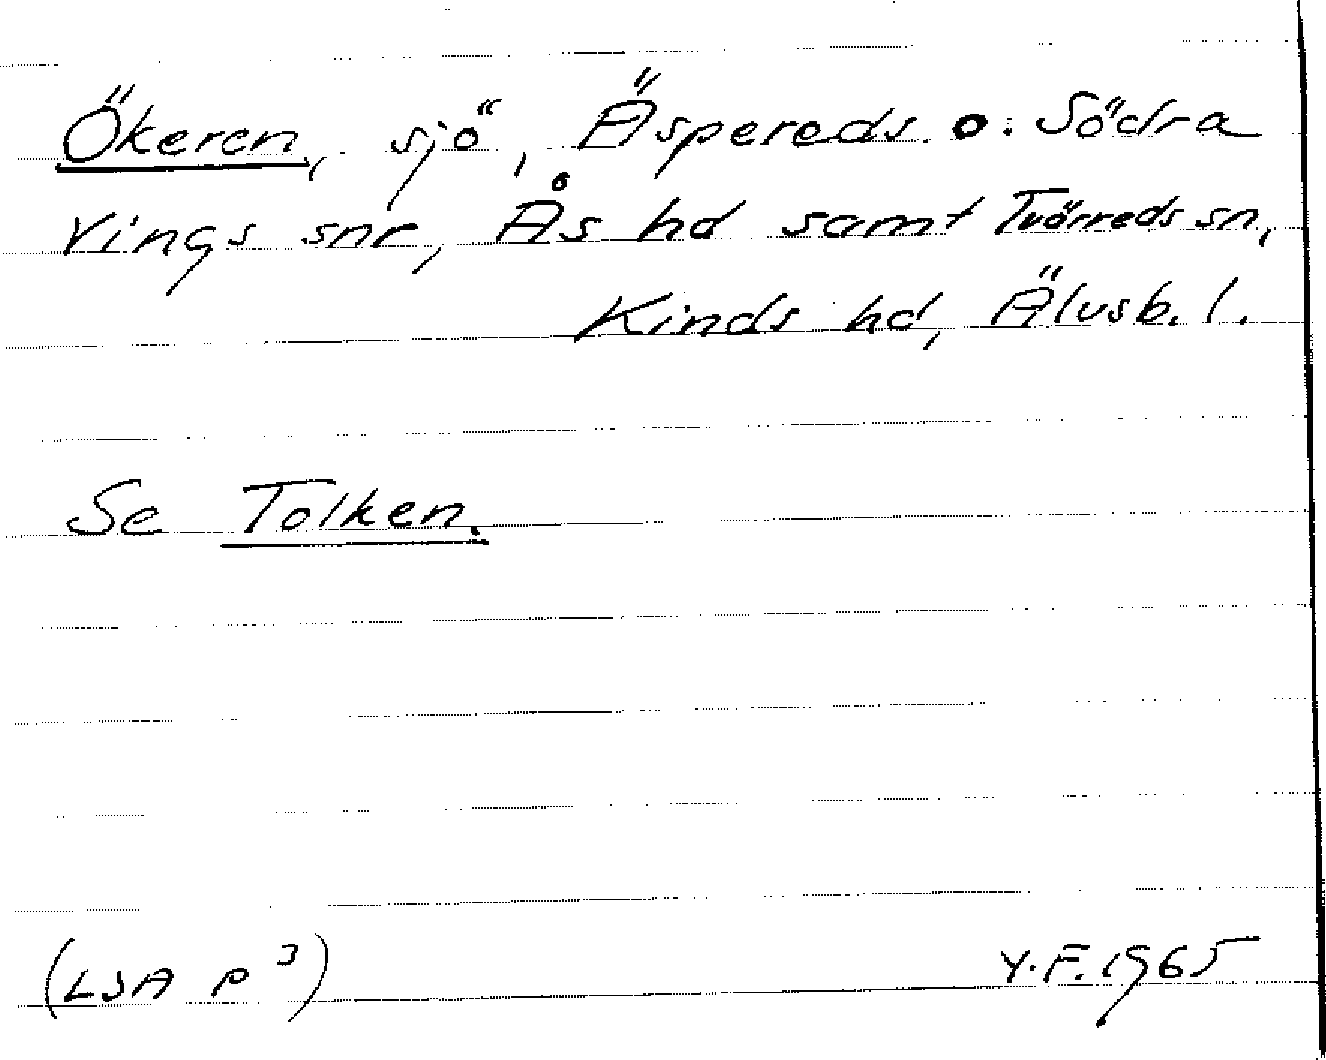 Ökeren, sjö, Äspereds o. Södra
Vings snr, Ås hd samt Tvärreds sn,
Kinds hd, Älvsb. l.
Se Tolken.
(LSA P 3) Y.F. 1965